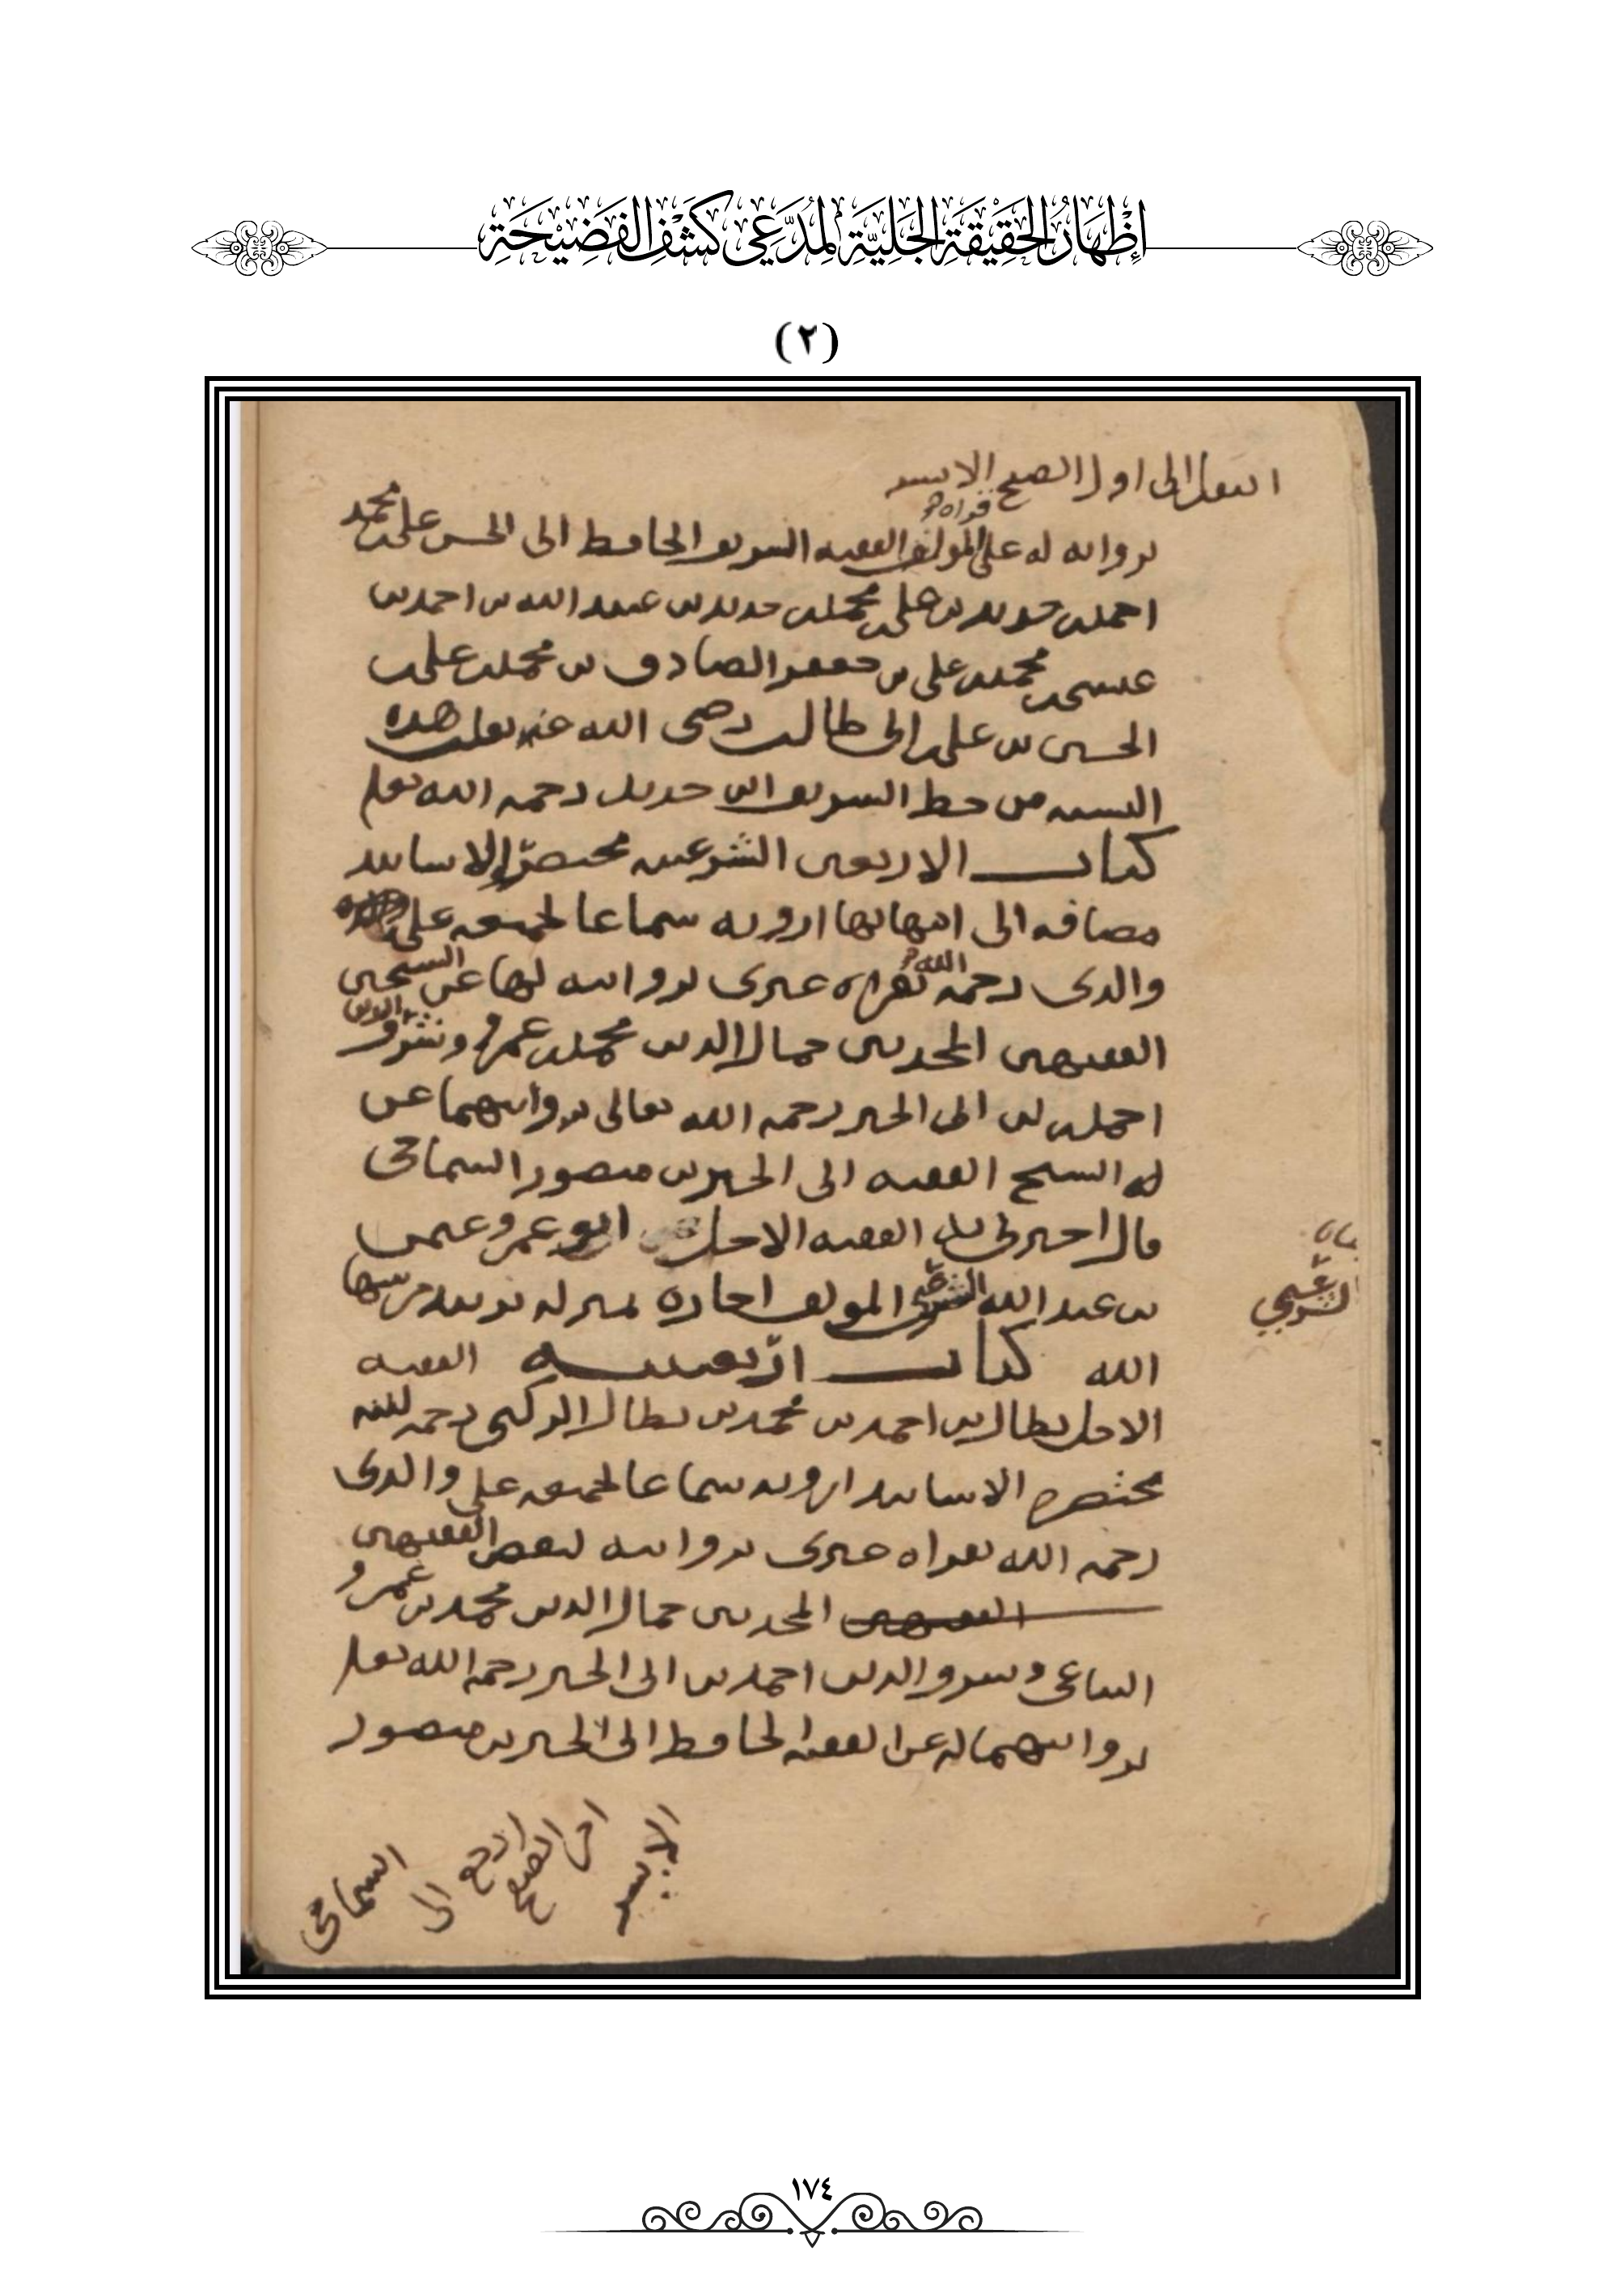 إِظْهَارُ الْحَقِيْقَةِ الْجَلِيَّةِ لِمُدَّعِي كَشْفِ الْفَضِيْحَةِ
(٢)
انتقل الى اول الصفح الايسر
قراه
بروايته له على المولف الفقيه الشريف الحافظ ابى الحسن على بن محمد
احمد بن حديد بن على بن محمد بن حديد بن عبد الله بن احمد بن
عيسى بن محمد بن على بن جعفر الصادق بن محمد بن على بن
الحسين بن على بن ابى طالب رضى الله عنه نقلت هذه
النسبه من خط الشريف ابن حديد رحمه الله تعلى
كتاب الاربعين الشرعيه مختصرا الاسانيد
مضافه الى امهاتها ارويه سماعا لجميعه على
والدى رحمه الله بقراه غيرى بروايته لها عن الشيخين
الفقيهين المحدثين جمال الدين محمد بن عمرو وشرف الدين
احمد بن ابى الخير رحمه الله تعالى بروايتهما عن
الشيخ الفقيه ابى الخير بن منصور السماحى
قال اخبرنى الفقيه الاجل ابو عمرو عثمن
بن عبد الله الشرعبى المولف اجازه بمنزله
الله كتاب اربعينيه الفقيه
الاجل بطال بن احمد بن محمد بن بطال الركبى رحمه الله
مختصره الاسانيد ارويه سماعا لجميعه على والدى
رحمه الله بقراه غيرى بروايته لبعض الفقيهين
الفقيهين المحدثين جمال الدين محمد بن عمرو
التباعى وشرف الدين احمد بن ابى الخير رحمه الله تعلى
بروايتهما له عن الفقيه الحافظ ابى الخير بن منصور
السماحى
ارجع الى
اخر الصفح
الايسر
الشرعبي
١٧٤